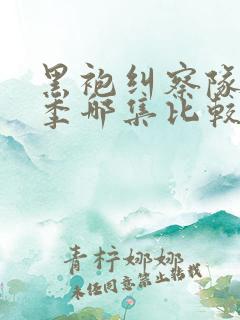 黑袍纠察队
季哪集比較
青柠娜娜
未经同意禁止转载